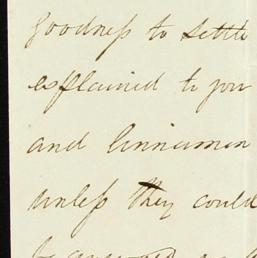 goodness to settle
explained to you
and Cinnamon
unless they could